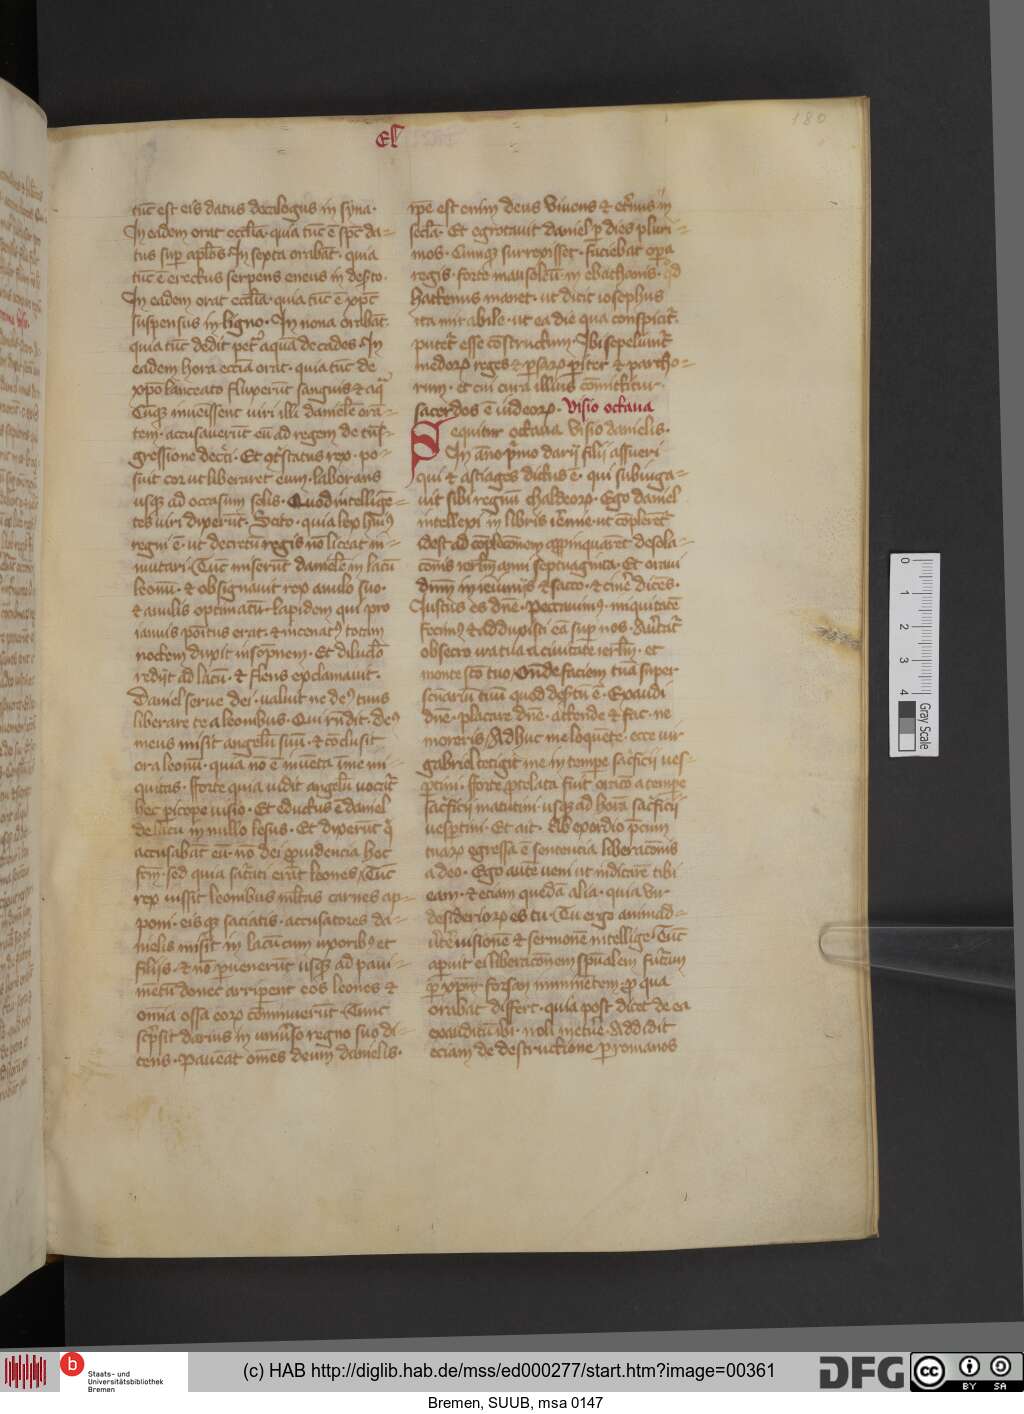 EL
180
tūc est eis datus decalogus in syna·
In eadem orat ecclīa· quia tūc ē spc̄ da⸗
tus sup̄ apl̄os· In sexta orabāt· quia
tūc ē erectus serpens eneus in deẜto·
In eadem orat ecclīa· quia tūc ē xp̄c
suspensus in ligno· In nona orabāt·
quia tūc dedit pet͛ aquā de cades· In
eadem hora ecc̄ia orat· quia tūc de
xp̄o lanceato fluxerūt sanguis ⁊ aq̄
Cūq; inueissent uiri illi danielē orā⸗
tem· accusauerūt eū ad regem de tn̄s⸗
gressione dec͛ti· Et 9t͛status rex· po⸗
suit cor ut liberaret eum· laborans
usq; ad occasum solis· Quod intelligē⸗
tes uiri dixerūt· Scito· quia lex hui9
regni ē· ut decretū regis nō liceat in⸗
mutari· Tūc miserūt danielē in lacū
leonū· ⁊ obsignauit rex anulo suo·
⁊ anulis optimatū· lapidem qui pro
ianuis poītus erat· ⁊ incenat9 totam
noctem duxit insōpnem· Et diluclo
redijt ad lacū· ⁊ flens exclamauit·
Daniel serue dei· ualuit ne de9 tuus
liberare te a leonibus· Qui rn̄dit· de9
meus misit angelū suū· ⁊ cōclusit
ora leonū· quia nō ē inuēta ī me ini⸗
quitas· fforte quia uidit angelū uocat͛
hec picope uisio· Et eductus ē daniel
de lacu in nullo lesus· Et dixerūt q̄
accusabāt eū· nō dei ꝓuidencia hoc
fcm̄· sed quia saciati erāt leones· Tūc
rex iussit leonibus ml̄tas carnes ap⸗
poni· eisq; saciatis· accusatores da⸗
nielis misit in lacū cum uxorib9 et
filijs· ⁊ nō puenerūt usq; ad paui⸗
mētū donec arriperent eos leones ⁊
omīa ossa eoꝝ cōminuerūt· Tunc
scp̄sit darius in uniuſo regno suo di⸗
cens· Paueāt om̄es deum danielis·
ipē est enim deus viuens ⁊ et͛nus in
sec̄la· Et egrotauit daniel p dies pluri⸗
mos· Cumq; surrexisset· faciebat opa
regis· forte mausoleū· in ebathanis· qd
hactenus manet· ut dicit iosephus
ita mirabile· ut ea die qua conspicit͛·
putet͛ esse cōstructum· Ibi sepeliunt͛
medoꝝ reges ⁊ psaꝝ pīter ⁊ partho⸗
rum· et cui cura illius cōmittitur·
sacerdos ē iudeoꝝ· Visio octaua
Sequitur octaua visio danielis·
In anno pͥmo darij filii assueri
qui ⁊ astiages dictus ē· qui subiuga⸗
uit sibi regnū chaldeoꝝ· Ego daniel
intellexi in libris ierēmie· ut cōpleret͛
idest ad cōplecōnem appinquaret desola⸗
cōnis ierlm̄ anni septuaginta· Et oraui
dn̄m in ieiunijs ⁊ sacco· ⁊ cine͛ dices·
Iustus es dn̄e· Peccauim9· iniquitatē
fecim9 ⁊ adduxisti eā sup nos· Au͛tat͛
obsecro ira tua a ciuitate ierlm̄· et
monte scō tuo· Onde faciem tuā super
scūariū tuū quod deẜtū ē· Exaudi
dn̄e· placare dn̄e· attende ⁊ fac· ne
moreris· Adhuc me loquēte· ecce uir
gabriel tetigit me in tempe sacficii ues⸗
ptini· fforte ꝓtelata fuit oraco a tempe
sacficii matutini usq; ad horā sacficii
uesptini· Et ait· Ab exordio p̄cum
tuaꝝ egressa ē sentencia liberacōnis
a deo· Ego autē ueni ut indicarē tibi
eam· ⁊ eciam quedā alia· quia uir
desiderioꝝ es tu· Tu ergo animad⸗
u͛te uisionē ⁊ sermonē intellige· Tūc
apuit ei liberacōnem spūalem futurū
p xp̄m· forsan imminētem ꝓ qua
orabat differt· quia post dicet de ea
exauditū ibi· noli metue͛· Addidit
eciam de destructione p romanos
0
1
2
3
4
Gray Scale
b
Staats- und
Universitätsbibliothek
Bremen
(c) HAB http://diglib.hab.de/mss/ed000277/start.htm?image=00361
DFG
cc
BY SA
Bremen, SUUB, msa 0147